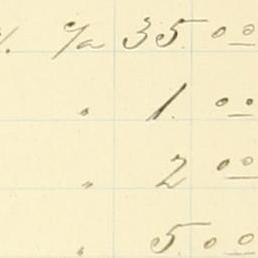 % 35.00
" 1.00
" 2.00
" 5.00